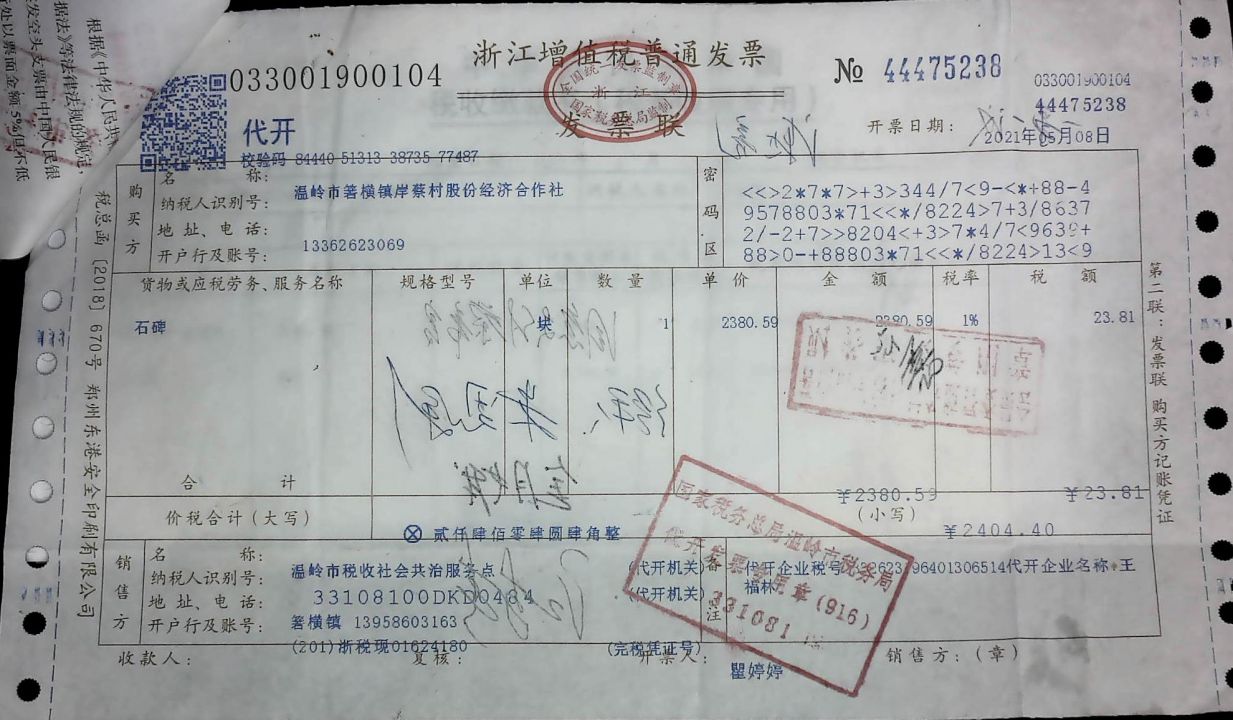 根据《中华人民共
据法》等法律法规的规定,
发空头支票由中国人民银
处以票面金额5%但不低
浙江增值税普通发票
033001900104
№ 44475238
033001900104
44475238
全国统一发票监制章
浙江
国家税务总局监制
发票联
代开
开票日期:
2021年05月08日
校验码 84440 51313 38735 77487
购买方
名称:
温岭市箬横镇岸蔡村股份经济合作社
纳税人识别号:
地址、电话:
13362623069
开户行及账号:
密码区
<<>2*7*7>+3>344/7<9-<*+88-4
9578803*71<<*/8224>7+3/8637
2/-2+7>>8204<+3>7*4/7<9639+
88>0-+88803*71<<*/8224>13<9
货物或应税劳务、服务名称 规格型号 单位 数量 单价 金额 税率 税额
石碑 块 1 2380.59 2380.59 1% 23.81
合计 ¥2380.59 ¥23.81
价税合计(大写)
ⓧ 贰仟肆佰零肆圆肆角整
(小写)
¥2404.40
销售方
名称:
温岭市税收社会共治服务点
(代开机关)
纳税人识别号:
33108100DKD0434
(代开机关)
地址、电话:
箬横镇 13958603163
开户行及账号:
(201)浙税现01624180
(完税凭证号)
备注
代开企业名称:王
福林
国家税务总局温岭市税务局
代开发票专用章(916)
331081
收款人:
复核:
开票人:
瞿婷婷
销售方:(章)
税总函〔2018〕670号 郑州东港安全印刷有限公司
第二联:发票联 购买方记账凭证